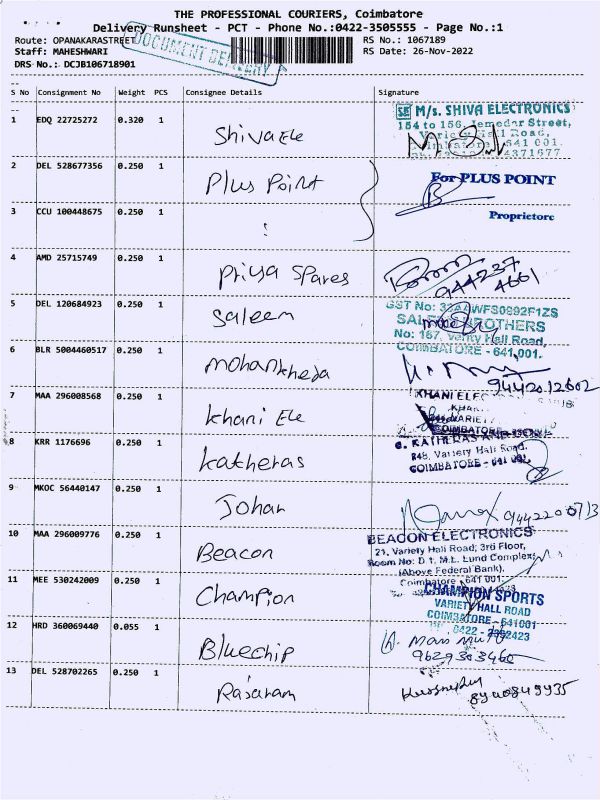 THE PROFESSIONAL COURIERS, Coimbatore
Delivery Runsheet - PCT - Phone No.:0422-3505555 - Page No.:1
Route: OPANAKARASTREET
RS No.: 1067189
Staff: MAHESHWARI
RS Date: 26-Nov-2022
DRS No.: DCJB106718901
DOCUMENT DELIVERY
S No Consignment No Weight PCS Consignee Details Signature
1 EDQ 22725272 0.320 1 Shiva Ele
M/s. SHIVA ELECTRONICS
154 to 156, Jemedar Street,
Variety Hall Road,
Coimbatore 641 001.
4371677
2 DEL 528677356 0.250 1 Plus Point
For PLUS POINT
Proprietore
3 CCU 100448675 0.250 1 :
4 AMD 25715749 0.250 1 Priya Spares
944237
4661
5 DEL 120684923 0.250 1 Saleem
GST No: WFS0992F1ZS
BROTHERS
No: 167, Hall Road,
COIMBATORE - 641,001.
6 BLR 5004460517 0.250 1 Mohankheda
9442012602
7 MAA 296008568 0.250 1 Khani Ele
KHANI ELEC
COIMBATORE
8 KRR 1176696 0.250 1 Katheras
G. KATHERAS AND
848, Variety Hall Road,
COIMBATORE - 641 001.
9 MKOC 56440147 0.250 1 Johar
10 MAA 296009776 0.250 1 Beacon
BEACON ELECTRONICS
21, Variety Hall Road, 3rd Floor,
Room No: D 1, M.L. Lund Complex,
(Above Federal Bank),
Coimbatore 641 001
11 MEE 530242009 0.250 1 Champion
CHAMPION SPORTS
VARIETY HALL ROAD
COIMBATORE - 641001
0422 - 2392423
12 HRD 360069440 0.055 1 Bluechip
9629303460
13 DEL 528702265 0.250 1 Rajaram